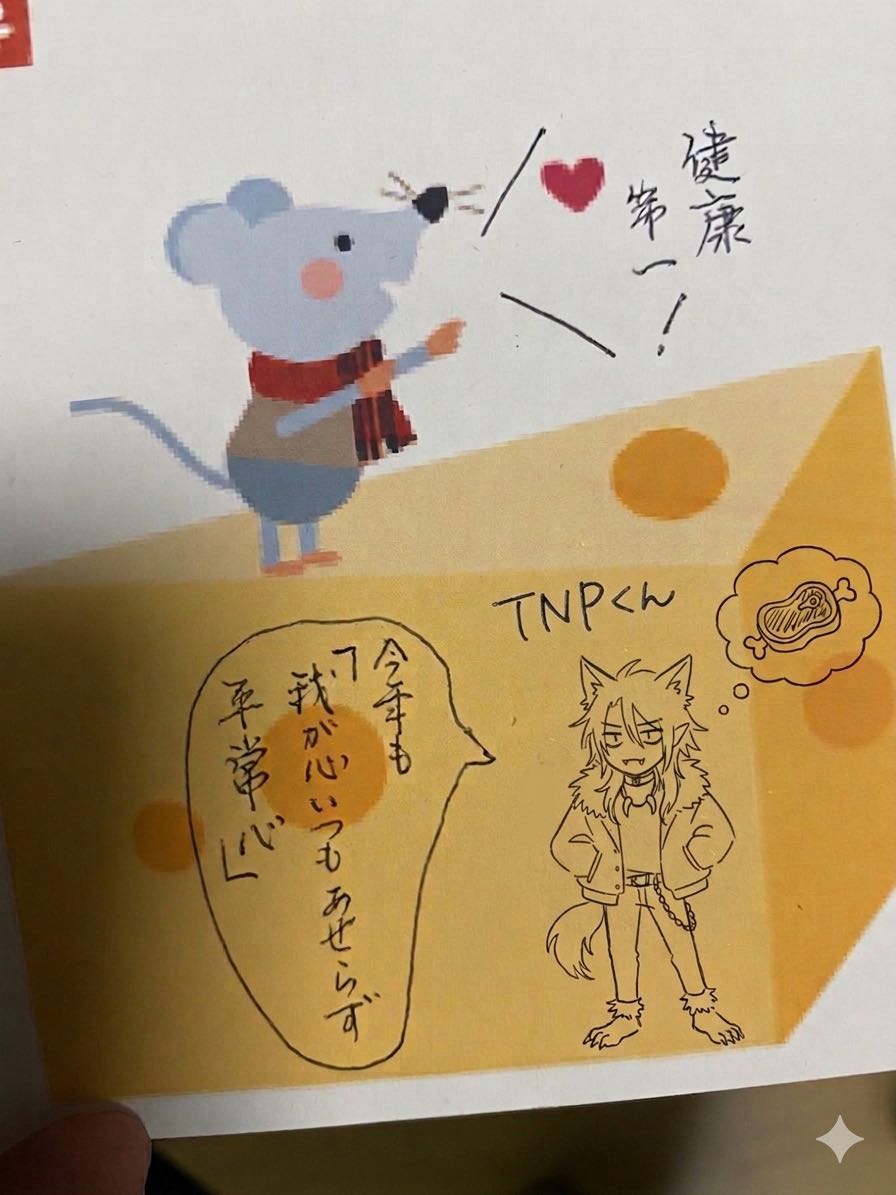 健康
第一!
TNPくん
今年も
「我が心いつもあせらず
平常心」